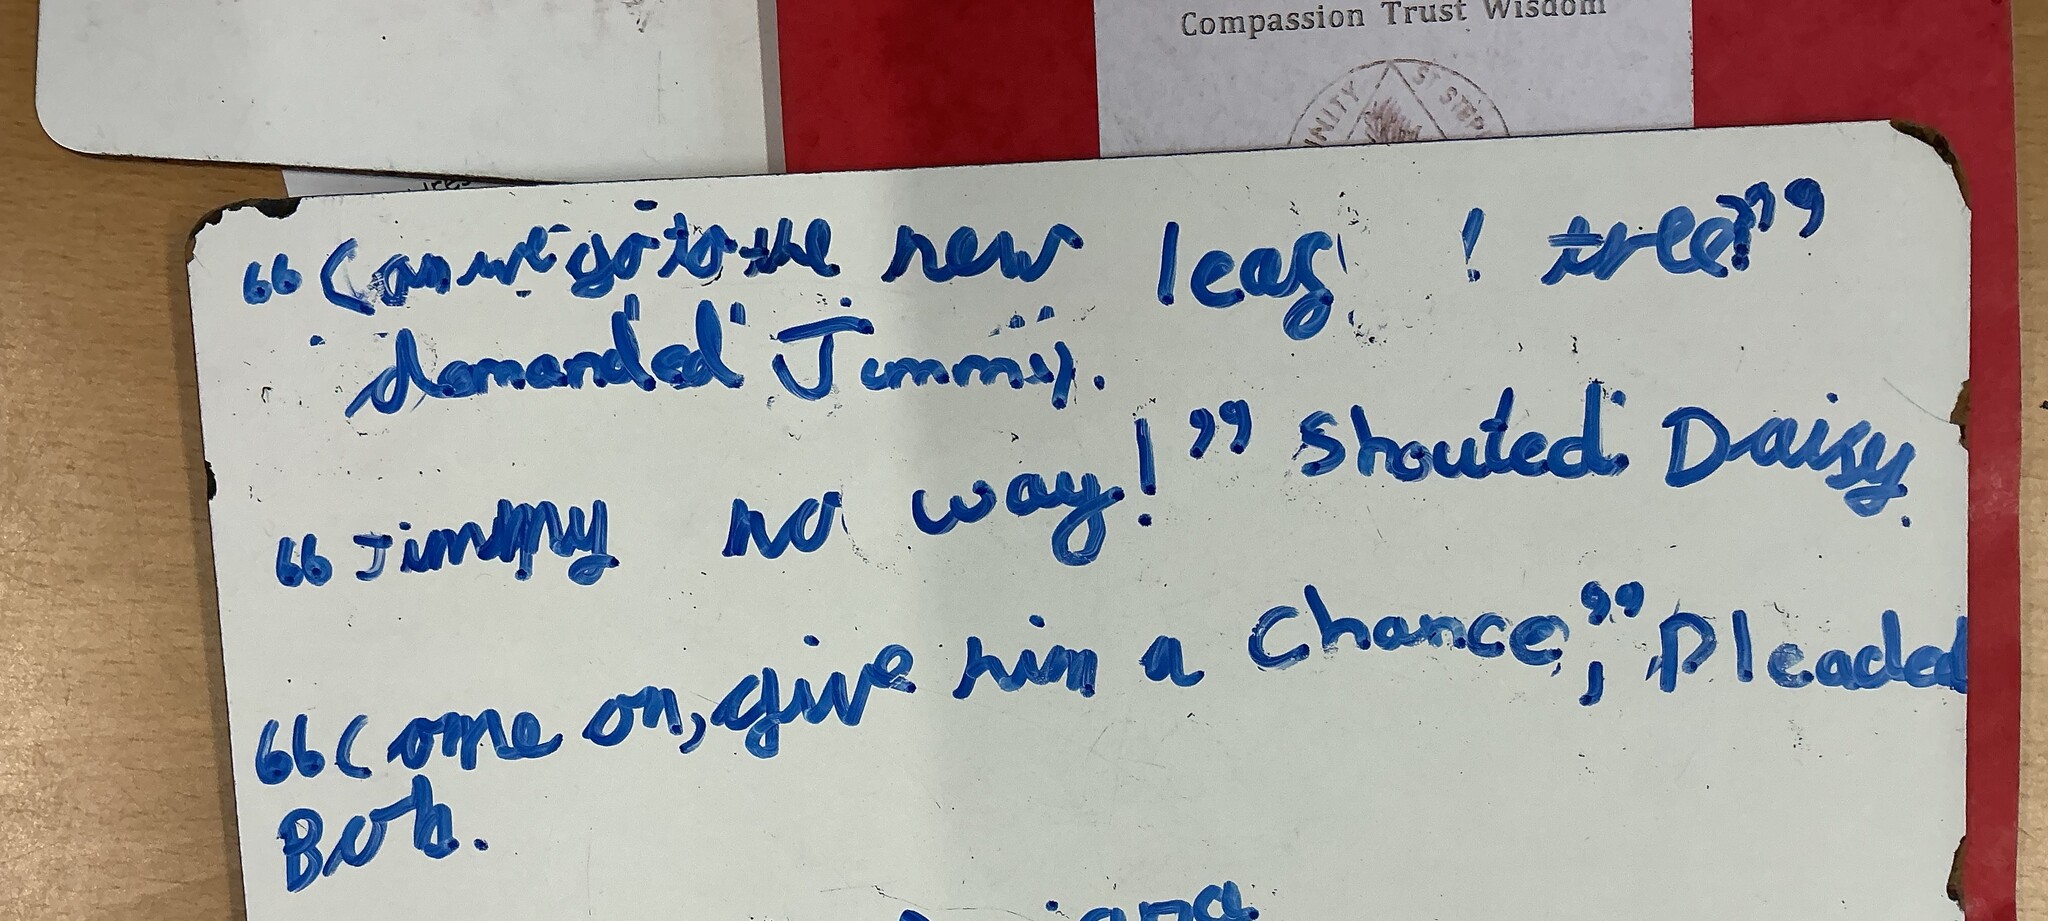 Compassion Trust Wisdom
NITY ST STEP
“Can we go to the new leaf ! tree?”
demanded Jimmy.
“Jimmy no way!” Shouted Daisy.
“Come on, give him a Chance,” Pleaded
Bob.